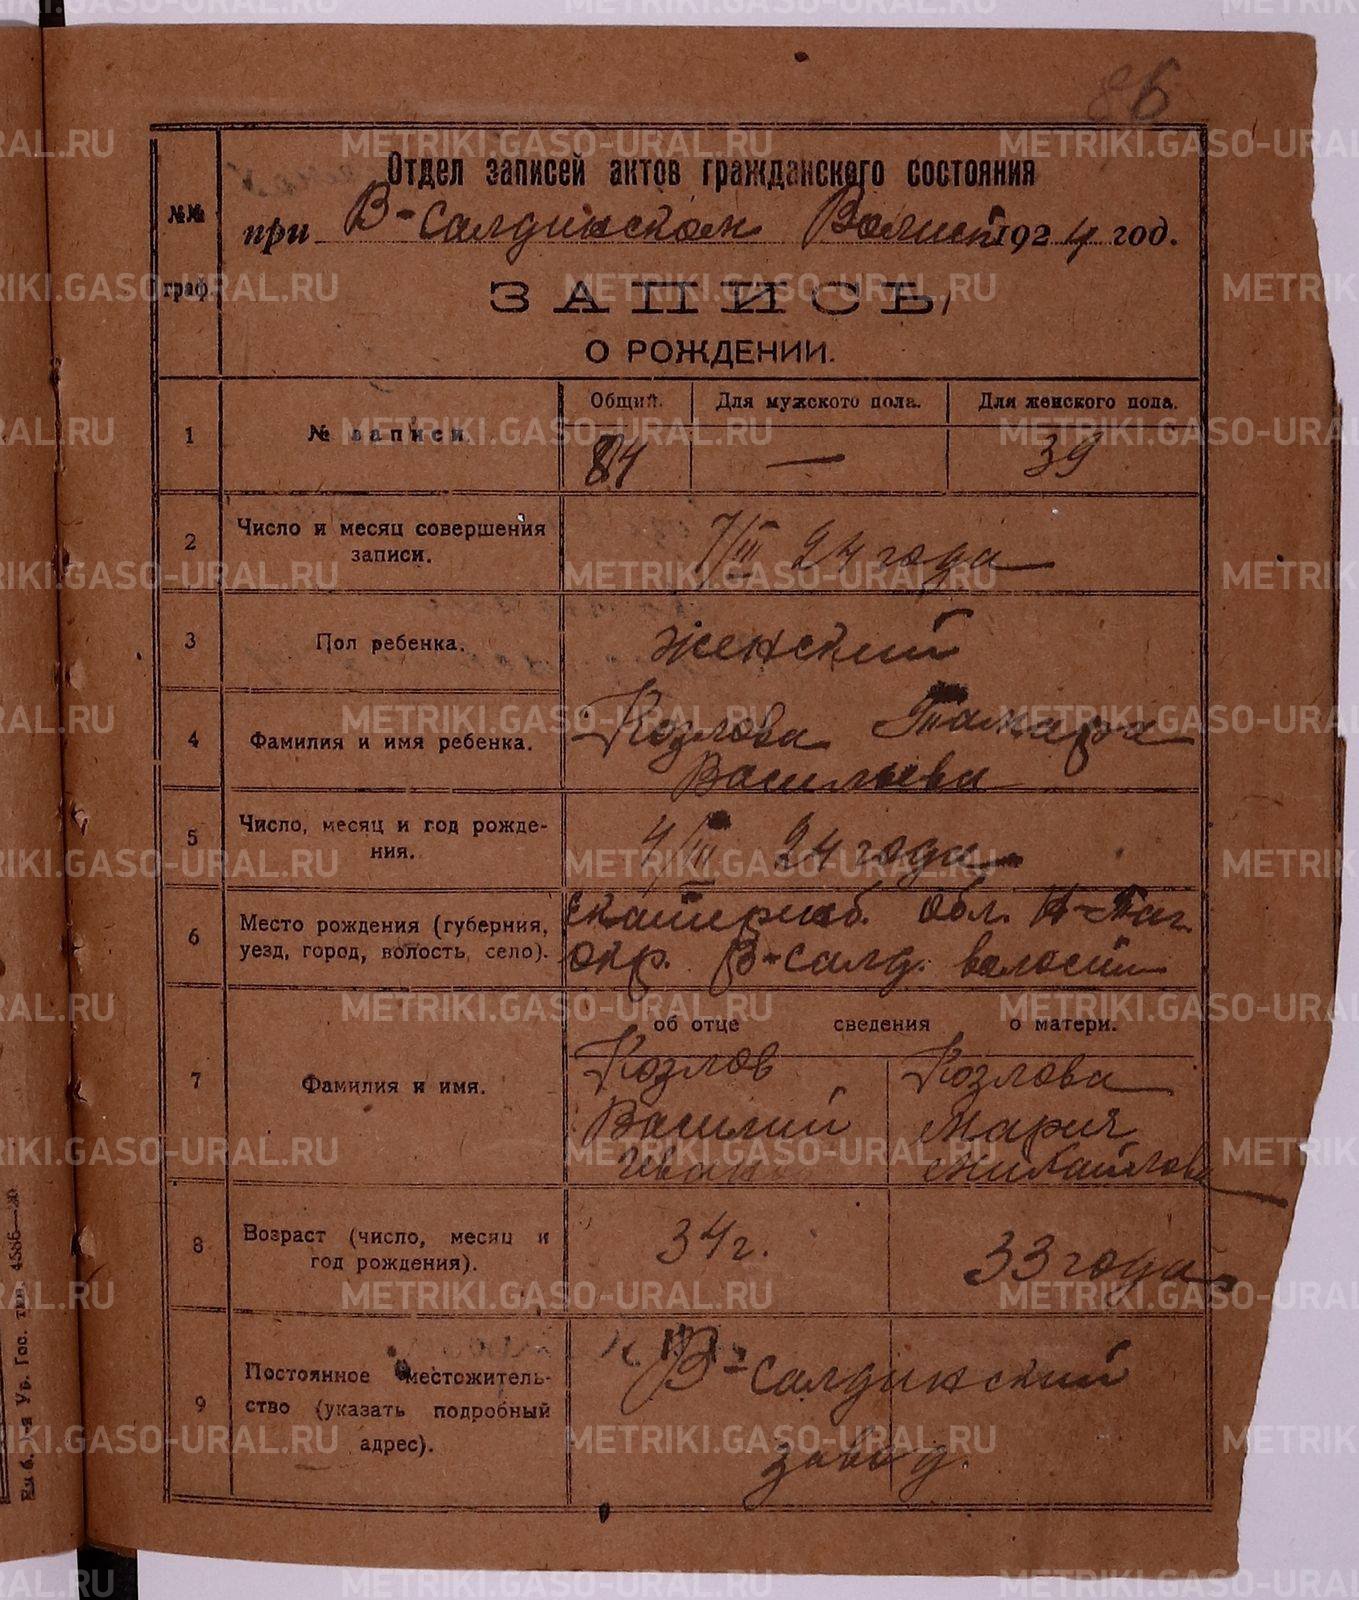 86
Отдел записей актов гражданского состояния
при В-Салдинском 1924 год.
№№ граф.
ЗАПИСЬ
О РОЖДЕНИИ.
Общий. Для мужского пола. Для женского пола.
1 № записи 84 — 39
2 Число и месяц совершения записи. 7/III 24 года
3 Пол ребенка. женский
4 Фамилия и имя ребенка. Козлова Тамара
Васильева
5 Число, месяц и год рождения. 4/III 24 года
6 Место рождения (губерния, Екатеринб. Обл. Н-Таг.
уезд, город, волость, село). Окр. В-Салд. волости
об отце сведения о матери.
7 Фамилия и имя. Козлов Козлова
Василий Мария
Иванов Михайлова
8 Возраст (число, месяц и год рождения). 34 г. 33 года
9 Постоянное местожитель- В-Салдинский
ство (указать подробный
адрес). завод.
METRIKI.GASO-URAL.RU